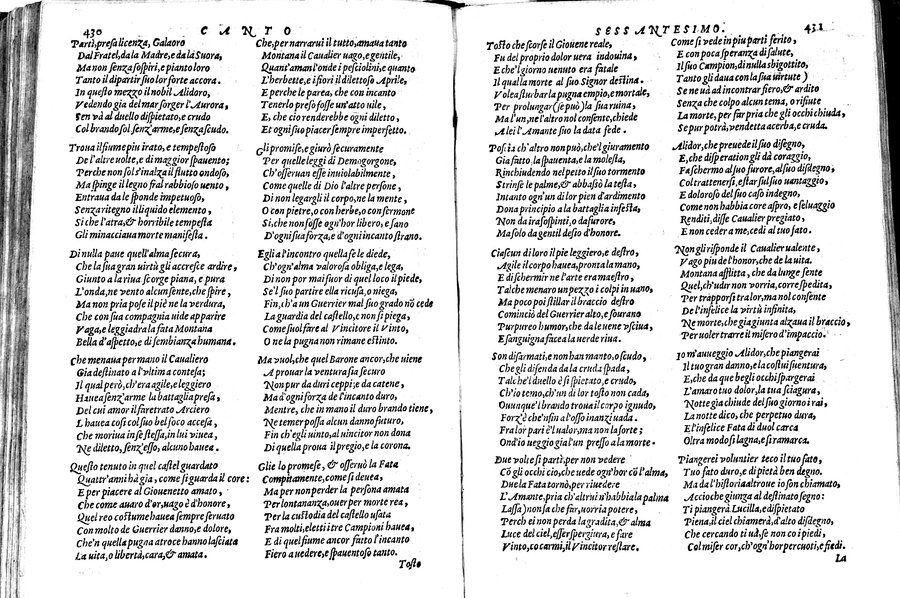 430 CANTO
Partì, presa licenza, Galaoro
Dal Fratel, da la Madre, e da la Suora,
Ma non senza sospiri, e pianto loro
Tanto il dipartir suo lor forte accora.
In questo mezzo il nobil Alidoro,
Vedendo gia del mar sorger l'Aurora,
Sen và al duello dispietato, e crudo
Col brando sol senz'arme, e senza scudo.
Troua il fiume piu irato, e tempestoso
De l'altre uolte, e di maggior spauento;
Perche non sol s'inalza il flutto ondoso,
Ma spinge il legno fi al rabbioso uento,
Entraua da le sponde impetuoso,
Senza ritegno il liquido elemento,
Si che l'atra, & horribile tempesta
Gli minacciaua morte manifesta.
Di nulla paue quell'alma secura,
Che la sua gran uirtù gli accresce ardire,
Giunto a la riua scorge piana, e pura
L'onda, ne vento alcun sente, che spire,
Ma non pria pose il piè ne la verdura,
Che con sua compagnia uide apparire
Vaga, e leggiadra la fata Montana
Bella d'aspetto, e di sembianza humana.
Che menaua per mano il Caualiero
Gia destinato a l'vltima contesa;
Il qual però, ch'era agile, e leggiero
Hauea senz'arme la battaglia presa,
Del cui amor il faretrato Arciero
L'hauea cosi col suo bel foco accesa,
Che moriua in se stessa, in lui viuea,
Ne diletto, senz'esso, alcuno hauea.
Questo tenuto in quel castel guardato
Quattr'anni hà gia, come si guarda il core:
E per piacer al Giouenetto amato,
Che come auaro d'or, uago è d'honore,
Quel reo costume hauea sempre seruato
Con molto de Guerrier danno, e dolore,
Che'n quella pugna atroce hanno lasciata
La uita, o libertà, cara, & amata.
Che, per narrarui il tutto, amaua tanto
Montana il Caualier uago, e gentile,
Quant'aman l'onde i pesciolini, e quanto
L'herbette, e i fiori il dilettoso Aprile,
E perche le parea, che con incanto
Tenerlo preso fosse un'atto uile,
E, che cio renderebbe ogni diletto,
Et ogni suo piacer sempre imperfetto.
Gli promise, e giurò securamente
Per quelle leggi di Demogorgone,
Ch'osseruan esse inuiolabilmente,
Come quelle di Dio l'altre persone,
Di non legargli il corpo, ne la mente,
O con pietre, o con herbe, o con sermone
Si, che non fosse ogn'hor libero, e sano
D'ogni sua forza, e d'ogni incanto strano.
Egli a l'incontro quella fe le diede,
Ch'ogn'alma valorosa obliga, e lega,
Di non por mai fuor di quel loco il piede,
Se'l suo partire ella ricusa, o niega,
Fin, ch'a un Guerrier mal suo grado nō cede
La guardia del castello, e non si piega,
Come suol fare al Vincitore il Vinto,
O ne la pugna non rimane estinto.
Ma vuol, che quel Barone ancor, che uiene
A prouar la ventura sia securo
Non pur da duri ceppi; e da catene,
Ma d'ogni forza de l'incanto duro,
Mentre, che in mano il duro brando tiene,
Ne temer possa alcun danno futuro,
Fin ch'egli uinto, al uincitor non dona
Di quella proua il pregio, e la corona.
Glie lo promese, & osseruò la Fata
Compitamente, come si deuea,
Ma per non perder la persona amata
Per lontananza, ouer per morte rea,
Per la custodia del castello usata
Fra molti, eletti i tre Campioni hauea,
E di quel fiume ancor fatto l'incanto
Fiero a uedere, e spauentoso tanto.
Tosto
SESSANTESIMO. 431
Tosto che scorse il Giouene reale,
Fu del proprio dolor uera indouina,
E che'l giorno uenuto era fatale
Il qual la morte al suo Signor destina.
Volea sturbar la pugna empio, e mortale,
Per prolungar (se può) la sua ruina,
Ma l'un, ne l'altro nol consente, chiede
A lei l'Amante suo la data fede.
Poscia ch'altro non può, che'l giuramento
Gia fatto, la spauenta, e la molesta,
Rinchiudendo nel petto il suo tormento
Strinse le palme, & abbassò la testa,
Intanto ogn'un di lor pien d'ardimento
Dona principio a la battaglia infesta,
Non da ira sospinti, o da furore,
Ma solo da gentil desio d'honore.
Ciascun di loro il pie leggiero, e destro,
Agile il corpo hauea, pronta la mano,
E di schermir ne l'arte era maestro,
Talche menaro un pezzo i colpi in uano,
Ma poco poi stillar il braccio destro
Cominciò del Guerrier alto, e sourano
Purpureo humor, che da le uene vsciua,
E sanguigna facea la uerde riua.
Son disarmati, e non han manto, o scudo,
Che gli difenda da la cruda spada,
Talche'l duello è si spietato, e crudo,
Ch'io temo, ch'un di lor tosto non cada,
Ouunque'l brando troua il corpo ignudo,
Forz'è che'nfin a l'osso inanzi uada.
Fra lor pari è'l ualor, ma non la sorte;
Ond'io ueggio gia l'un presso a la morte.
Due volte si partì, per non vedere
Cō gli occhi ciò, che uede ogn'hor cō l'alma,
Due la Fata tornò, per riuedere
L'Amante, pria ch'altrui n'habbia la palma
Lassa) non sa che far, uorria potere,
Perch'ei non perda la gradita, & alma
Luce del ciel, esser spergiura, e fare
Vinto, co carmi, il Vincitor restare.
Come si vede in piu parti ferito,
E con poca speranza di salute,
Il suo Campion, di nulla sbigottito,
Tanto gli daua con la sua uirtute)
Se ne uà ad incontrar fiero, & ardito
Senza che colpo alcun tema, o rifiute
La morte, per far pria che gli occhi chiuda,
Se pur potrà, vendetta acerba, e cruda.
Alidor, che preuede il suo disegno,
E, che disperation gli dà coraggio,
Fa schermo al suo furore, al suo disdegno,
Col trattenersi, e star sul suo uantaggio,
E doloroso del suo caso indegno,
Come non habbia core aspro, e seluaggio
Renditi, disse Caualier pregiato,
E non ceder a me, cedi al tuo fato.
Non gli risponde il Caualier ualente,
Vago piu de l'honor, che de la uita.
Montana afflitta, che da lunge sente
Quel, ch'udir non vorria, corre spedita,
Per trapporsi tra lor, ma nol consente
De l'infelice la virtù infinita,
Ne morte, che gia giunta alzaua il braccio,
Per uoler trarre il misero d'impaccio.
Io m'auueggio Alidor, che piangerai
Il tuo gran danno, e la costui suentura,
E, che da que begli occhi spargerai
L'amaro tuo dolor, la tua sciagura,
Notte gia chiude del suo giorno i rai,
La notte dico, che perpetua dura,
E l'infelice Fata di duol carca
Oltra modo si lagna, e si ramarca.
Piangerei voluntier teco il tuo fato,
Tuo fato duro, e di pietà ben degno.
Ma da l'historia altroue io son chiamato,
Accioche giunga al destinato segno:
Ti piangerà Lucilla, e dispietato
Piena, il ciel chiamerà, d'alto disdegno,
Che cercando ti uà, se non co i piedi,
Col miser cor, ch'ogn'hor percuoti, e fiedi.
La